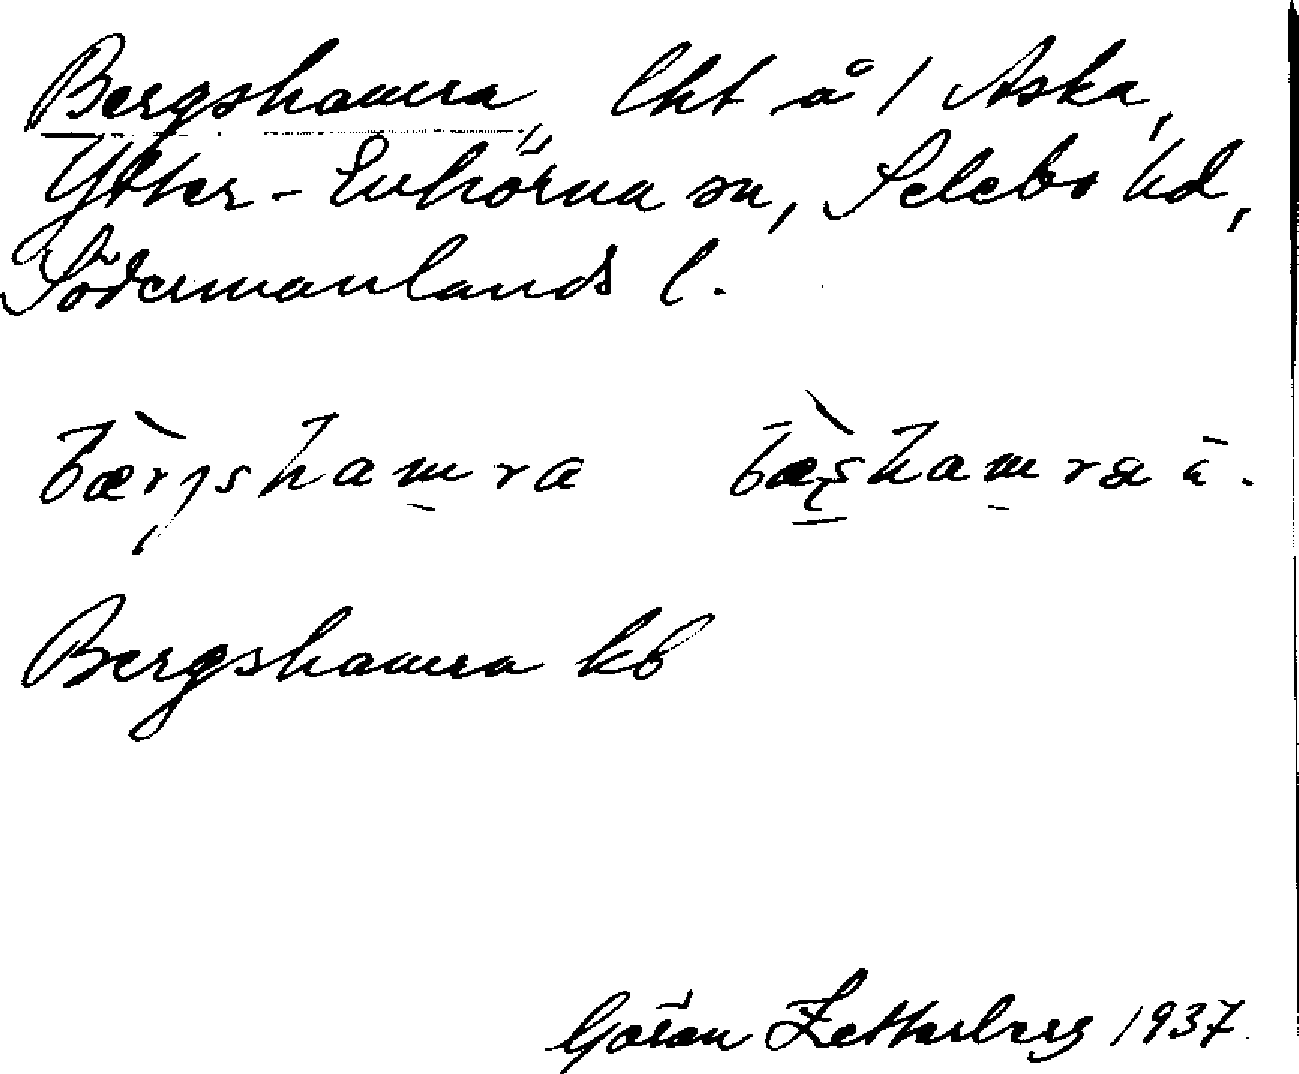 Bergshamra, lht å 1 Aska,
Ytter-Enhörna sn, Selebo hd,
Södermanlands l.
bæ̀rgshamra bæ̀ʂhamra ä.
Bergshamra kb
Göran Zetterberg 1937.